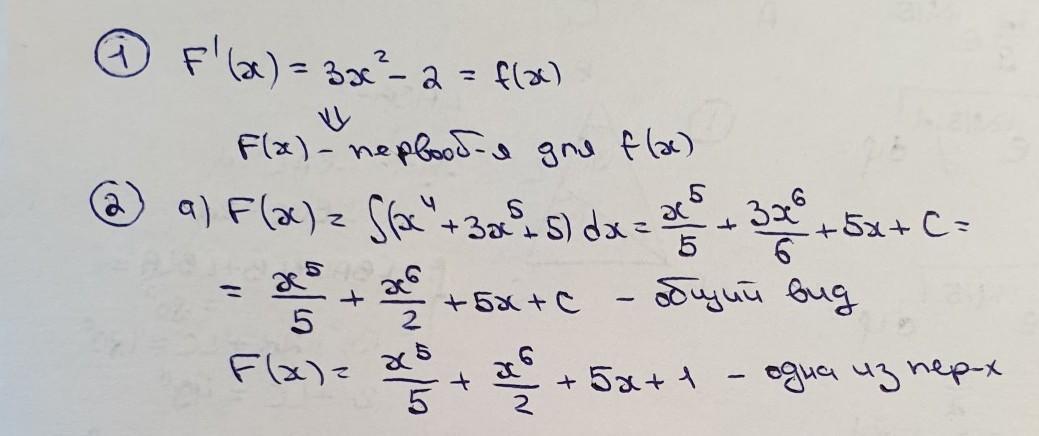 ① F'(x) = 3x² - 2 = f(x)
⇓
F(x) - первооб-я для f(x)
② а) F(x) = ∫(x⁴ + 3x⁵ + 5) dx = x⁵/5 + 3x⁶/6 + 5x + C =
= x⁵/5 + x⁶/2 + 5x + C - общий вид
F(x) = x⁵/5 + x⁶/2 + 5x + 1 - одна из пер-х